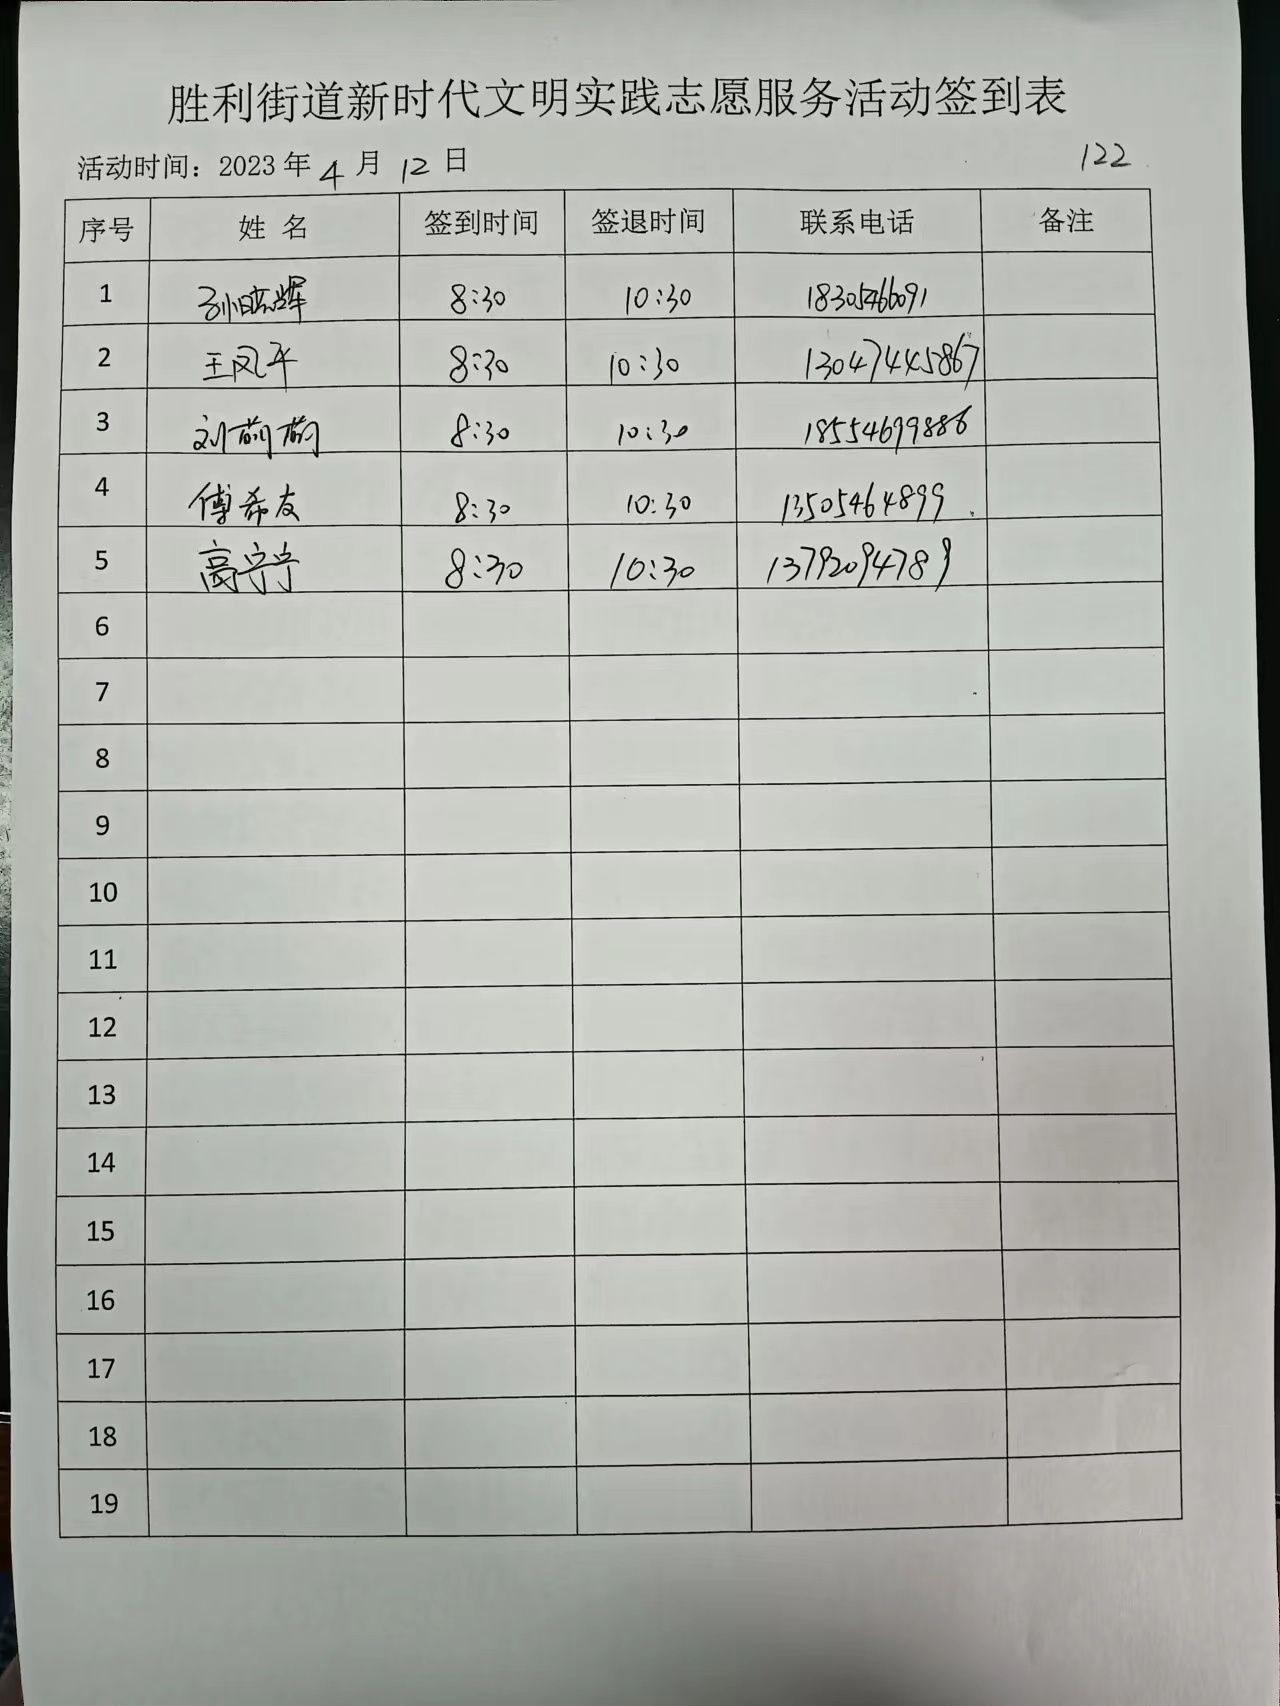 胜利街道新时代文明实践志愿服务活动签到表
活动时间：2023年4月12日 122
序号 姓 名 签到时间 签退时间 联系电话 备注
1 8:30 10:30 18305466091
2 王凤平 8:30 10:30 13047445867
3 刘萌萌 8:30 10:30 18554699886
4 傅希友 8:30 10:30 13505464899
5 高宁宁 8:30 10:30 13792094789
6
7
8
9
10
11
12
13
14
15
16
17
18
19